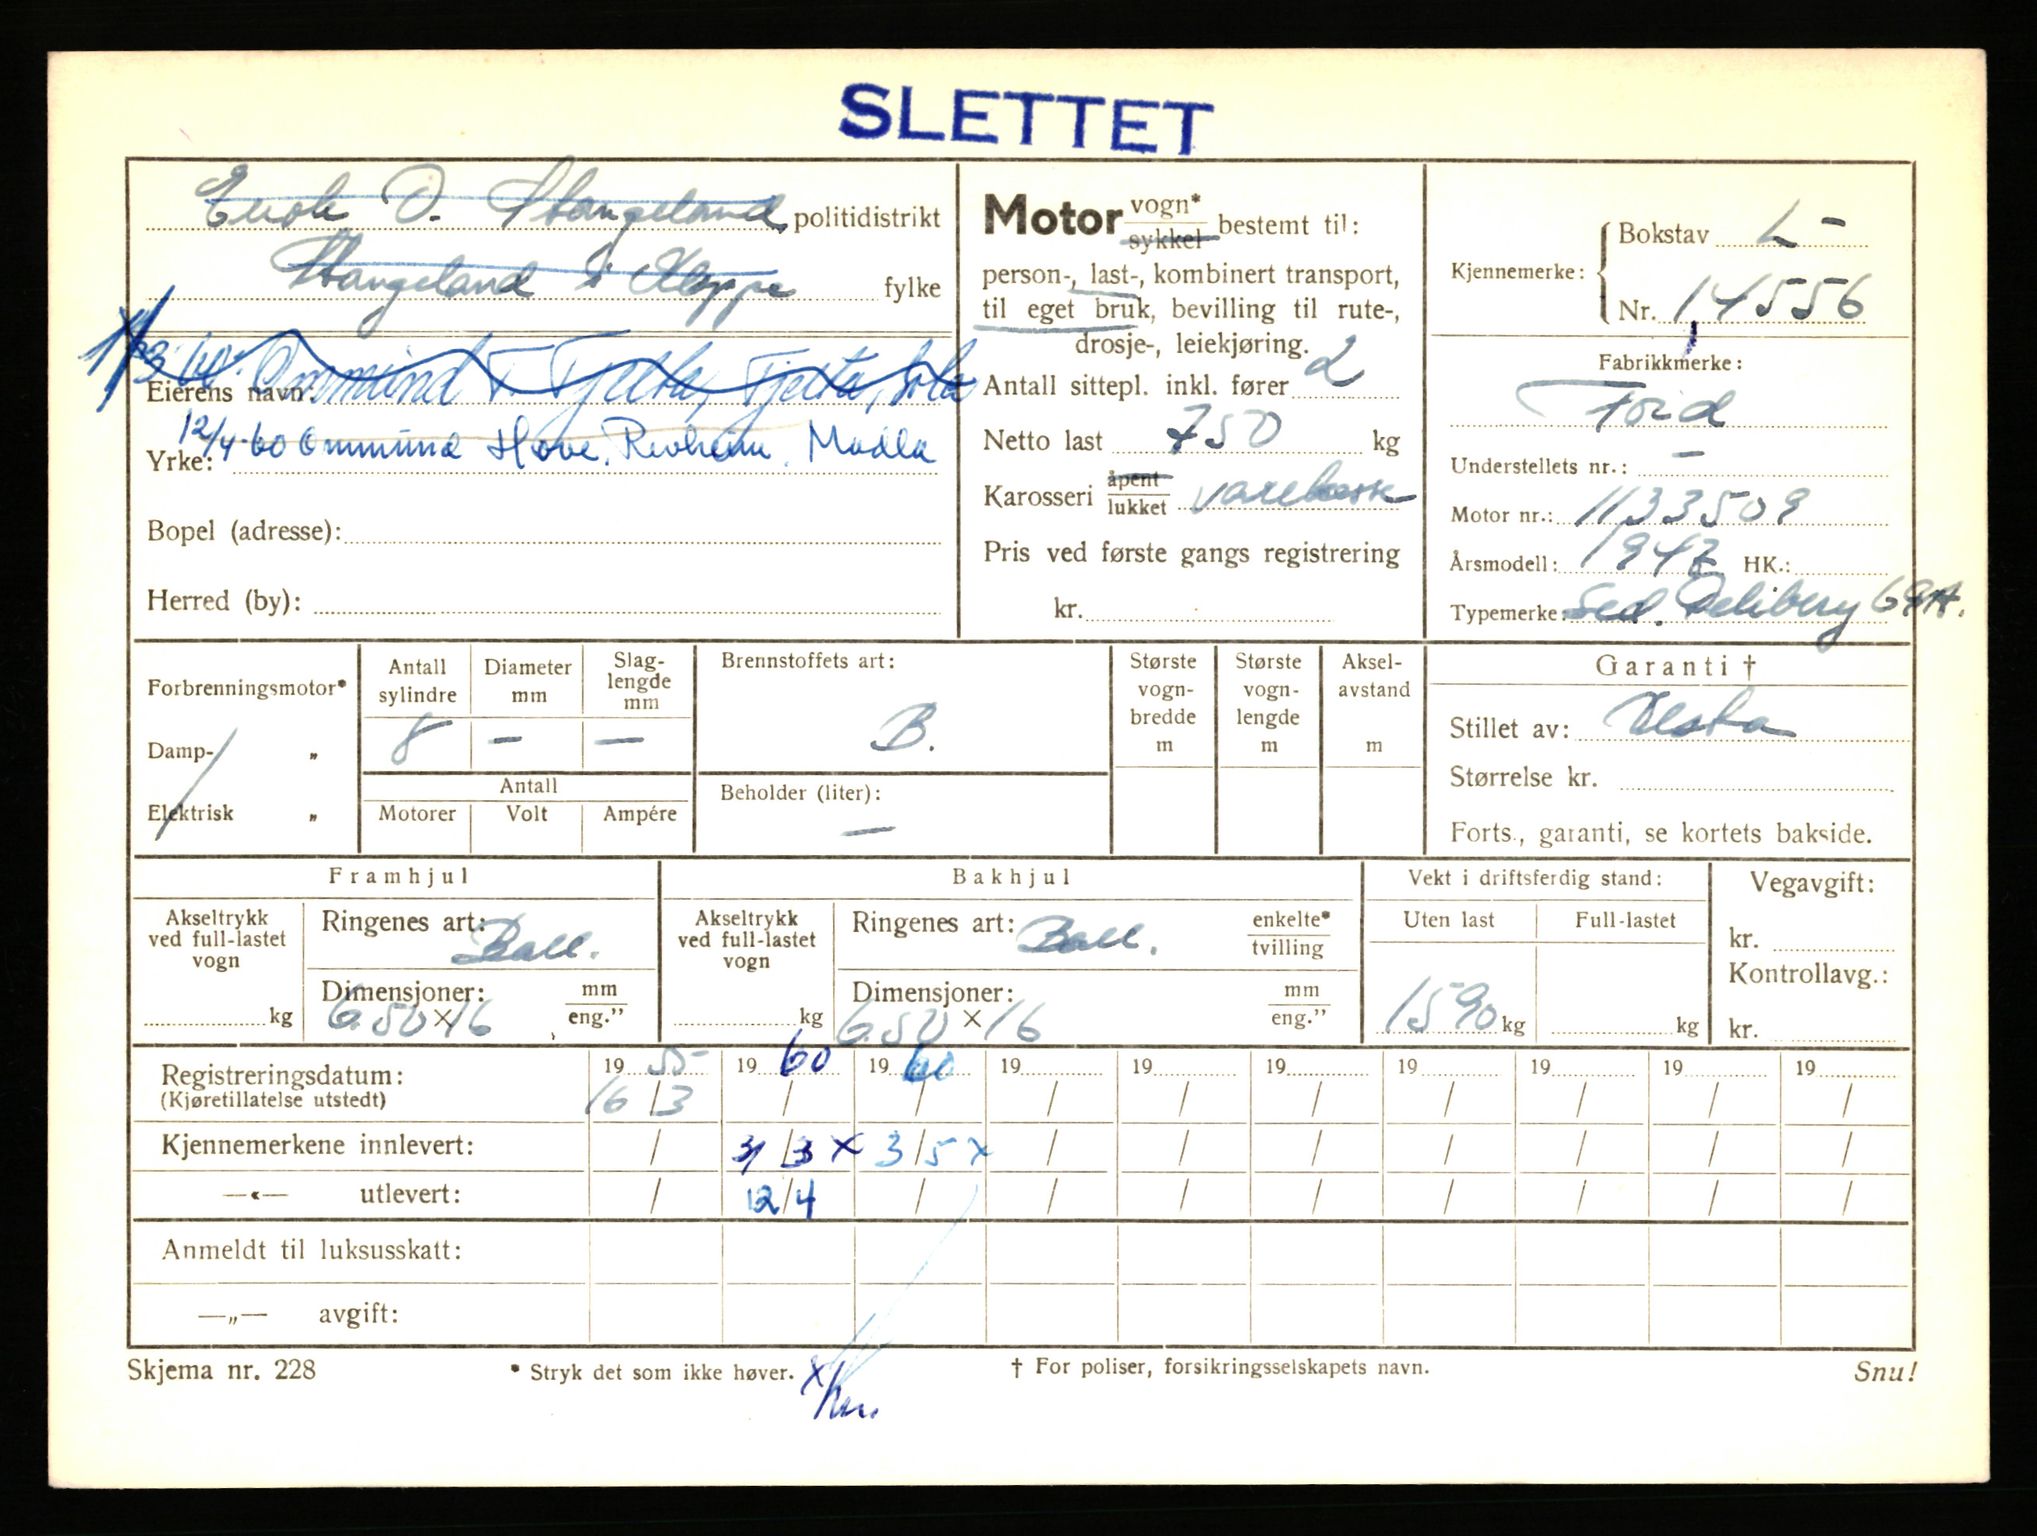 SLETTET
Enok O. Stangeland politidistrikt
Stangeland i Kleppe fylke
Eierens navn: Ommund T. Tjelta, Tjelta, Sola
12/4-60 Ommund Hove, Revheim. Madla
Yrke:
Bopel (adresse):
Herred (by):
Motor vogn* sykkel bestemt til:
person-, last-, kombinert transport,
til eget bruk, bevilling til rute-,
drosje-, leiekjøring.
Antall sittepl. inkl. fører 2
Netto last 750 kg
Karosseri åpent lukket varekasse
Pris ved første gangs registrering
kr.
Kjennemerke: Bokstav L-
Nr. 14556
Fabrikkmerke:
Ford
Understellets nr.: —
Motor nr.: 1133509
Årsmodell: 1947 HK.:
Typemerke: Sed. Delibery 69A.
Forbrenningsmotor*
Damp- „
Elektrisk „
Antall sylindre Diameter mm Slag-lengde mm
8 — —
Antall
Motorer Volt Ampére
Brennstoffets art:
B.
Beholder (liter):
—
Største vogn-bredde m
Største vogn-lengde m
Aksel-avstand m
Garanti †
Stillet av: Vesta
Størrelse kr.
Forts., garanti, se kortets bakside.
Framhjul
Akseltrykk ved full-lastet vogn
kg
Ringenes art: Ball.
Dimensjoner: mm eng."
6.50 x 16
Bakhjul
Akseltrykk ved full-lastet vogn
kg
Ringenes art: Ball. enkelte* tvilling
Dimensjoner: mm eng."
6.50 x 16
Vekt i driftsferdig stand:
Uten last Full-lastet
1590 kg kg
Vegavgift:
kr.
Kontrollavg.:
kr.
Registreringsdatum: 19 55 19 60 19 60 19 19 19 19 19 19 19
(Kjøretillatelse utstedt) 16/3 / / / / / / / / /
Kjennemerkene innlevert: / 3/3 x 3/5 x / / / / / / /
—«— utlevert: / 12/4 / / / / / / / /
Anmeldt til luksusskatt:
—„— avgift:
Skjema nr. 228 * Stryk det som ikke høver. † For poliser, forsikringsselskapets navn. Snu!
x